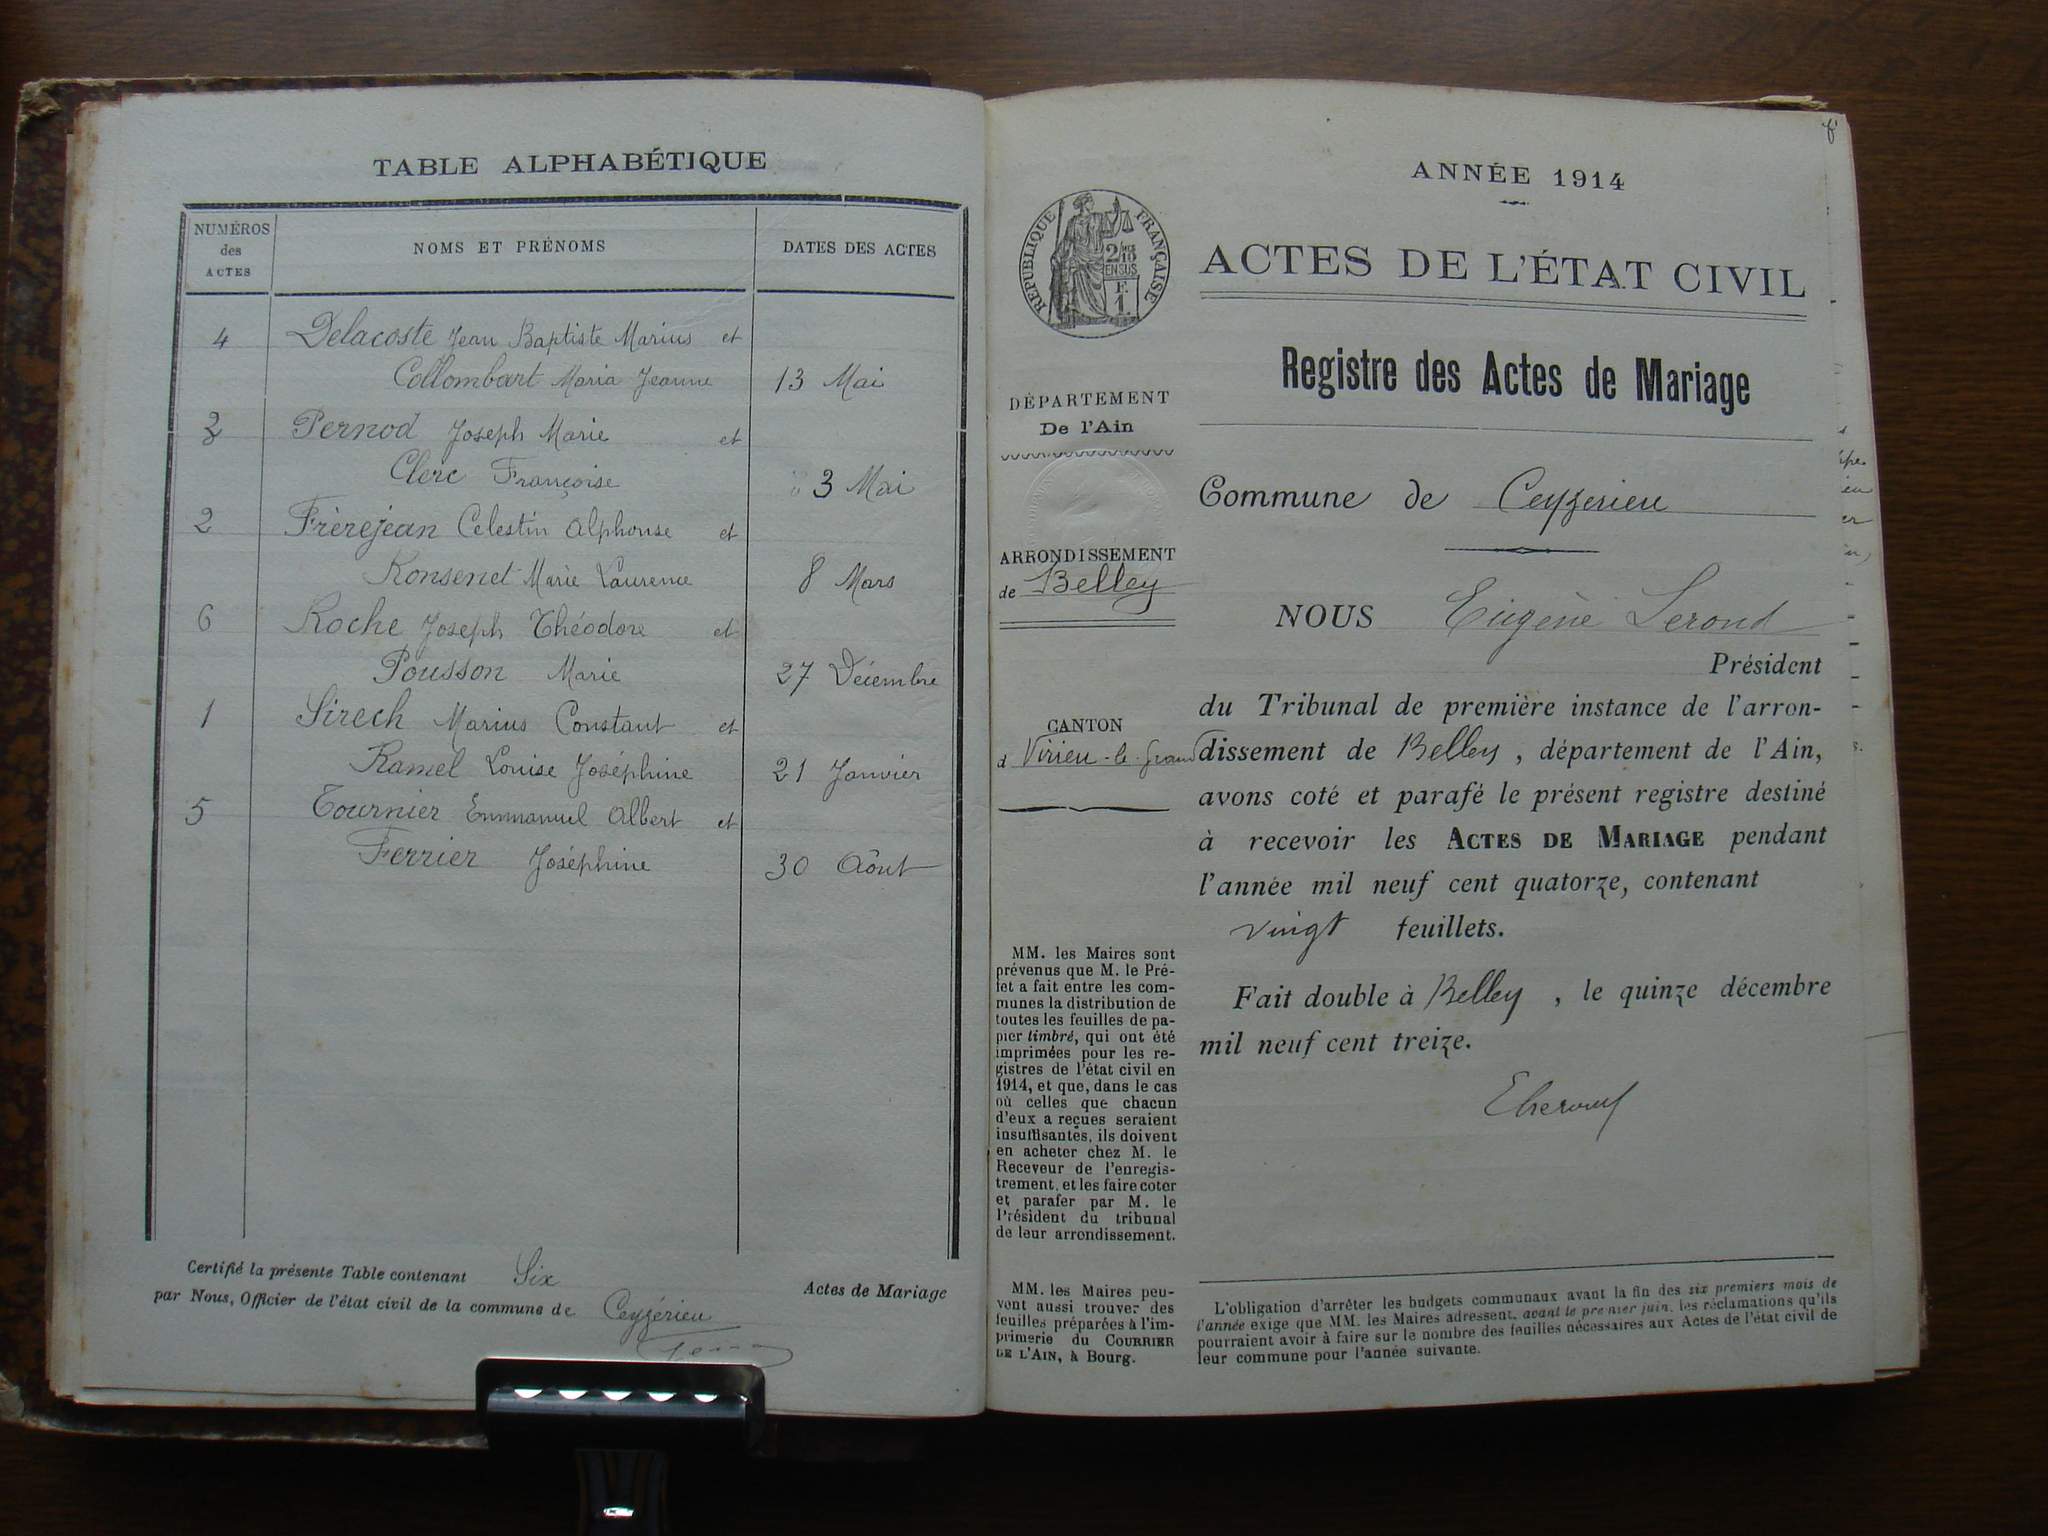 TABLE ALPHABÉTIQUE
NUMÉROS des ACTES
NOMS ET PRÉNOMS
DATES DES ACTES
4 Delacoste Jean Baptiste Marius et
Collombart Maria Jeanne 13 Mai
3 Pernod Joseph Marie et
Clerc Françoise 3 Mai
2 Frèrejean Celestin Alphonse et
Ronsenet Marie Laurence 8 Mars
6 Roche Joseph Théodore et
Pousson Marie 27 Décembre
1 Sirech Marius Constant et
Ramel Louise Joséphine 21 Janvier
5 Tournier Emmanuel Albert et
Ferrier Joséphine 30 Aôut
Certifié la présente Table contenant Six Actes de Mariage
par Nous, Officier de l'état civil de la commune de Ceyzérieu
RÉPUBLIQUE FRANÇAISE
2/10
EN SUS
F.
1.
DÉPARTEMENT
De l'Ain
ARRONDISSEMENT
de Belley
CANTON
d Virieu-le-Grand
MM. les Maires sont
prévenus que M. le Pré-
fet a fait entre les com-
munes la distribution de
toutes les feuilles de pa-
pier timbré, qui ont été
imprimées pour les re-
gistres de l'état civil en
1914, et que, dans le cas
où celles que chacun
d'eux a reçues seraient
insuffisantes, ils doivent
en acheter chez M. le
Receveur de l'enregis-
trement, et les faire coter
et parafer par M. le
Président du tribunal
de leur arrondissement.
MM. les Maires peu-
vent aussi trouver des
feuilles préparées à l'im-
primerie du COURRIER
DE L'AIN, à Bourg.
ANNÉE 1914
ACTES DE L'ÉTAT CIVIL
Registre des Actes de Mariage
Commune de Ceyzerieu
NOUS Eugène Lerond
Président
du Tribunal de première instance de l'arron-
dissement de Belley, département de l'Ain,
avons coté et parafé le présent registre destiné
à recevoir les ACTES DE MARIAGE pendant
l'année mil neuf cent quatorze, contenant
vingt feuillets.
Fait double à Belley, le quinze décembre
mil neuf cent treize.
L'obligation d'arrêter les budgets communaux avant la fin des six premiers mois de
l'année exige que MM. les Maires adressent, avant le premier juin, les réclamations qu'ils
pourraient avoir à faire sur le nombre des feuilles nécessaires aux Actes de l'état civil de
leur commune pour l'année suivante.